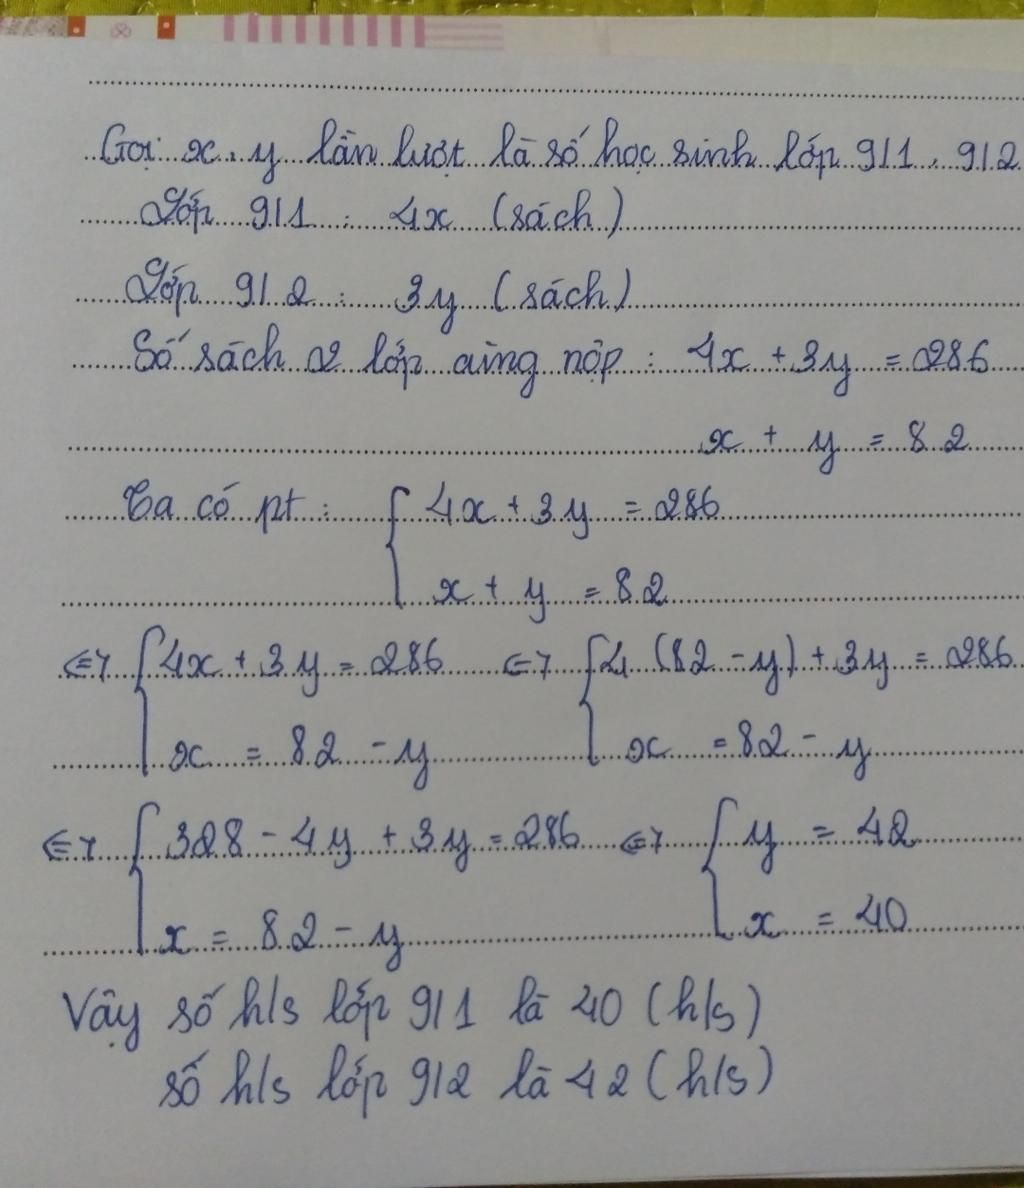 Gọi x, y lần lượt là số học sinh lớp 9/1, 9/2
Lớp 9/1 : 4x (sách)
Lớp 9/2 : 3y (sách)
Số sách 2 lớp cùng nộp : 4x + 3y = 286
x + y = 82
Ta có pt : { 4x + 3y = 286
x + y = 82
<=> { 4x + 3y = 286 <=> { 4 (82 - y) + 3y = 286
x = 82 - y x = 82 - y
<=> { 328 - 4y + 3y = 286 <=> { y = 42
x = 82 - y x = 40
Vậy số h/s lớp 9/1 là 40 (h/s)
số h/s lớp 9/2 là 42 (h/s)